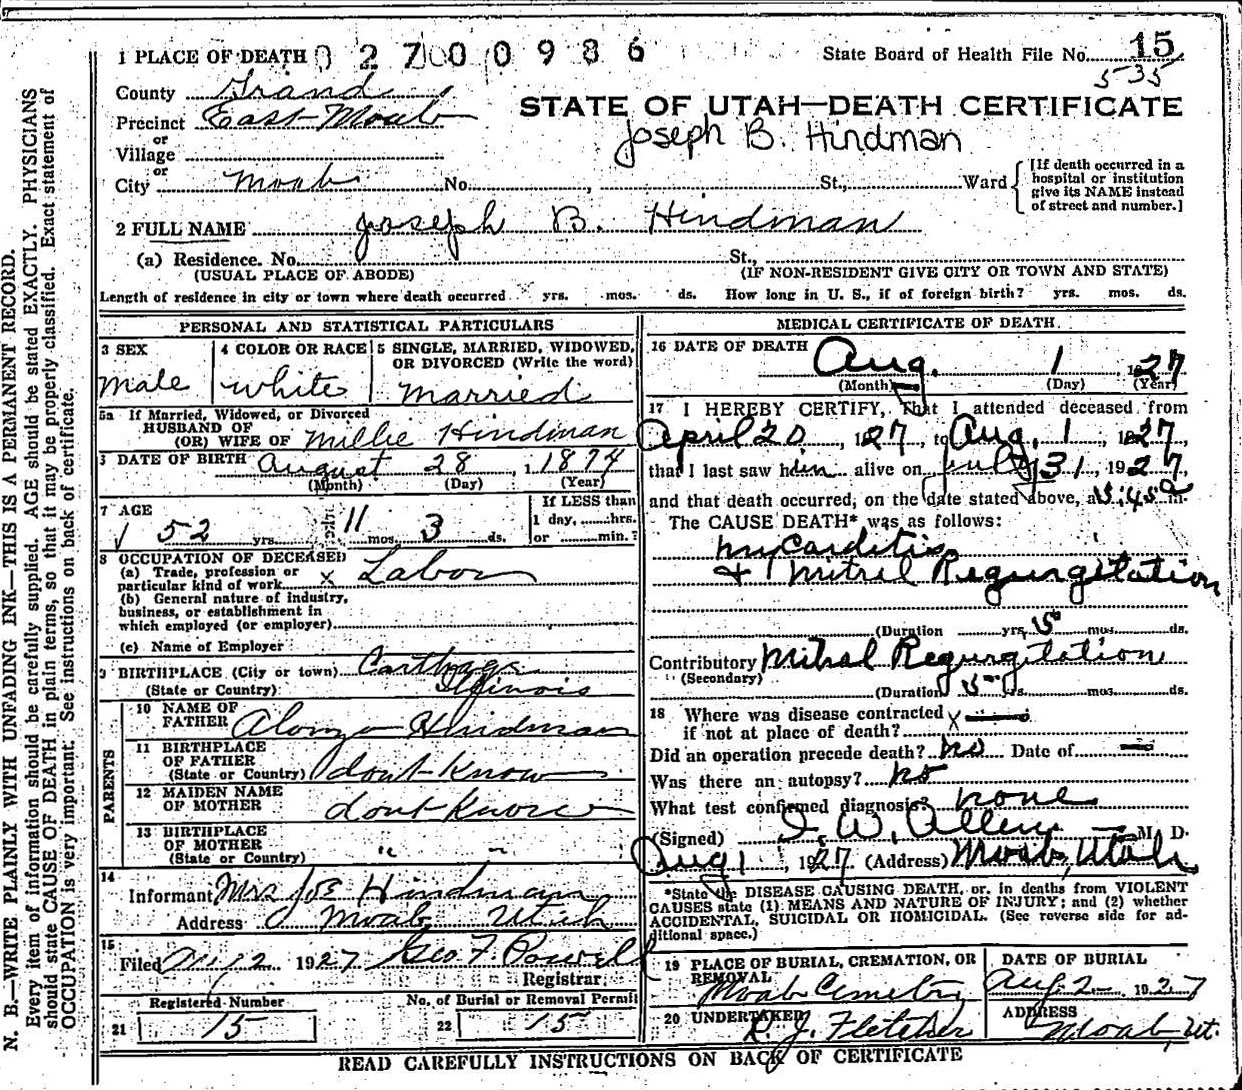 N. B.—WRITE PLAINLY WITH UNFADING INK—THIS IS A PERMANENT RECORD.
Every item of information should be carefully supplied. AGE should be stated EXACTLY. PHYSICIANS
should state CAUSE OF DEATH in plain terms, so that it may be properly classified. Exact statement of
OCCUPATION is very important. See instructions on back of certificate.
1 PLACE OF DEATH 02700986
State Board of Health File No. 15
535
County Grand
Precinct East Moab
STATE OF UTAH—DEATH CERTIFICATE
Joseph B. Hindman
or
Village
or
City Moab No. , St., Ward
[If death occurred in a
hospital or institution
give its NAME instead
of street and number.]
2 FULL NAME Joseph B. Hindman
(a) Residence. No. St.,
(USUAL PLACE OF ABODE) (IF NON-RESIDENT GIVE CITY OR TOWN AND STATE)
Length of residence in city or town where death occurred yrs. mos. ds. How long in U. S., if of foreign birth? yrs. mos. ds.
PERSONAL AND STATISTICAL PARTICULARS
3 SEX
male
4 COLOR OR RACE
white
5 SINGLE, MARRIED, WIDOWED,
OR DIVORCED (Write the word)
married
5a If Married, Widowed, or Divorced
HUSBAND OF
(OR) WIFE OF Millie Hindman
DATE OF BIRTH August 28 1874
(Month) (Day) (Year)
7 AGE
52 yrs. 11 mos. 3 ds.
If LESS than
1 day, hrs.
or min.?
8 OCCUPATION OF DECEASED
(a) Trade, profession or
particular kind of work x Labor
(b) General nature of industry,
business, or establishment in
which employed (or employer)
(c) Name of Employer
9 BIRTHPLACE (City or town) Carthage
(State or Country) Illinois
PARENTS
10 NAME OF
FATHER Alonzo Hindman
11 BIRTHPLACE
OF FATHER
(State or Country) dont Know
12 MAIDEN NAME
OF MOTHER dont Know
13 BIRTHPLACE
OF MOTHER
(State or Country) " "
14
Informant Mrs Joe Hindman
Address Moab Utah
15
Filed 1927 Geo F. Powell
Registrar
Registered Number
21 15
No. of Burial or Removal Permit
22 15
MEDICAL CERTIFICATE OF DEATH
16 DATE OF DEATH Aug. 1 27
(Month) (Day) (Year)
17 I HEREBY CERTIFY, That I attended deceased from
April 20, 27, to Aug. 1, 27,
that I last saw him alive on July 31, 1927,
and that death occurred, on the date stated above, at 5:45 m.
The CAUSE DEATH* was as follows:
mycarditis
+ mitrel Regurgitation
(Duration yrs. 5 mos. ds.
Contributory Mitral Regurgitation
(Secondary)
(Duration 5 yrs. mos. ds.
18 Where was disease contracted x
if not at place of death?
Did an operation precede death? no Date of —
Was there an autopsy? no
What test confirmed diagnosis? none
(Signed) I. W. Allen M. D.
Aug 1, 1927 (Address) Moab, Utah
*State the DISEASE CAUSING DEATH, or, in deaths from VIOLENT
CAUSES state (1) MEANS AND NATURE OF INJURY; and (2) whether
ACCIDENTAL, SUICIDAL OR HOMICIDAL. (See reverse side for ad-
ditional space.)
19 PLACE OF BURIAL, CREMATION, OR
REMOVAL
Moab Cemetry
DATE OF BURIAL
Aug 2 1927
20 UNDERTAKER
R. J. Fletcher
ADDRESS
Moab, Ut.
READ CAREFULLY INSTRUCTIONS ON BACK OF CERTIFICATE